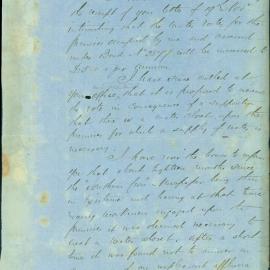 the receipt of your letter of 19 Novr
intimating that the water rate for the
premises occupied by me and assessed
under No 2577 will be increased to
per annum.
I have since called at
your office, that it is proposed to increase
the rate in consequence of a supposition
that there is a water closet upon the
premises for which a supply of water is
necessary.
I have now the honor to inform
you that about eighteen months
the newspaper being
in existence and having at that time
many workmen engaged upon the
premises it was deemed necessary to
erect a water closet, after a short
time it was found not to answer
of an unpleasant effluvia